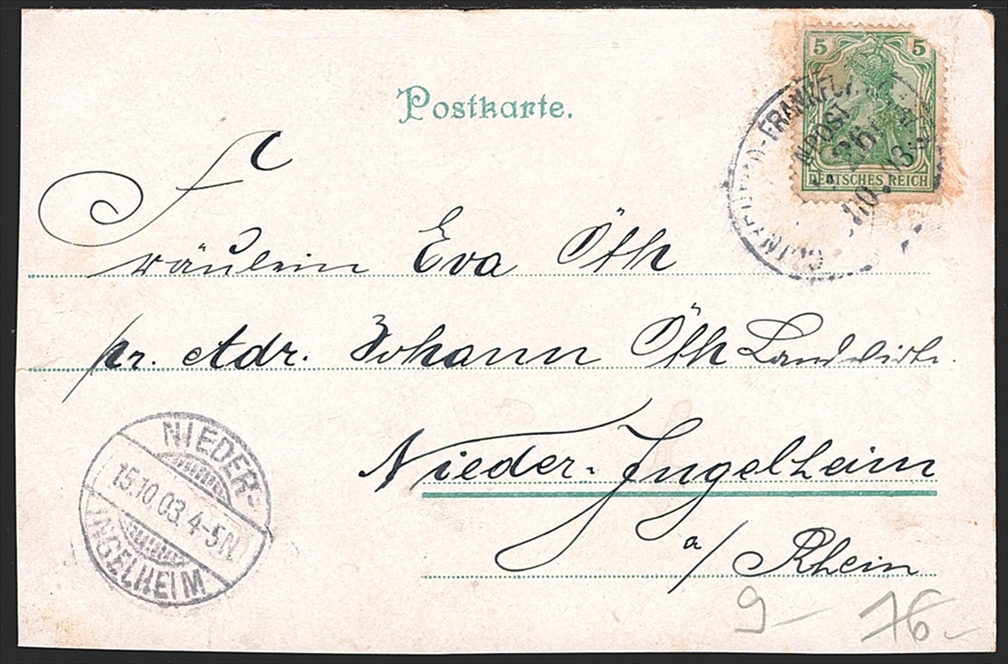 Postkarte.
5 5
DEUTSCHES REICH
Fräulein Eva Öth
pr. Adr. Johann Öth Landwirth.
Nieder-Ingelheim
a/ Rhein
NIEDER-
15.10.03. 4-5N.
INGELHEIM
9- 76-